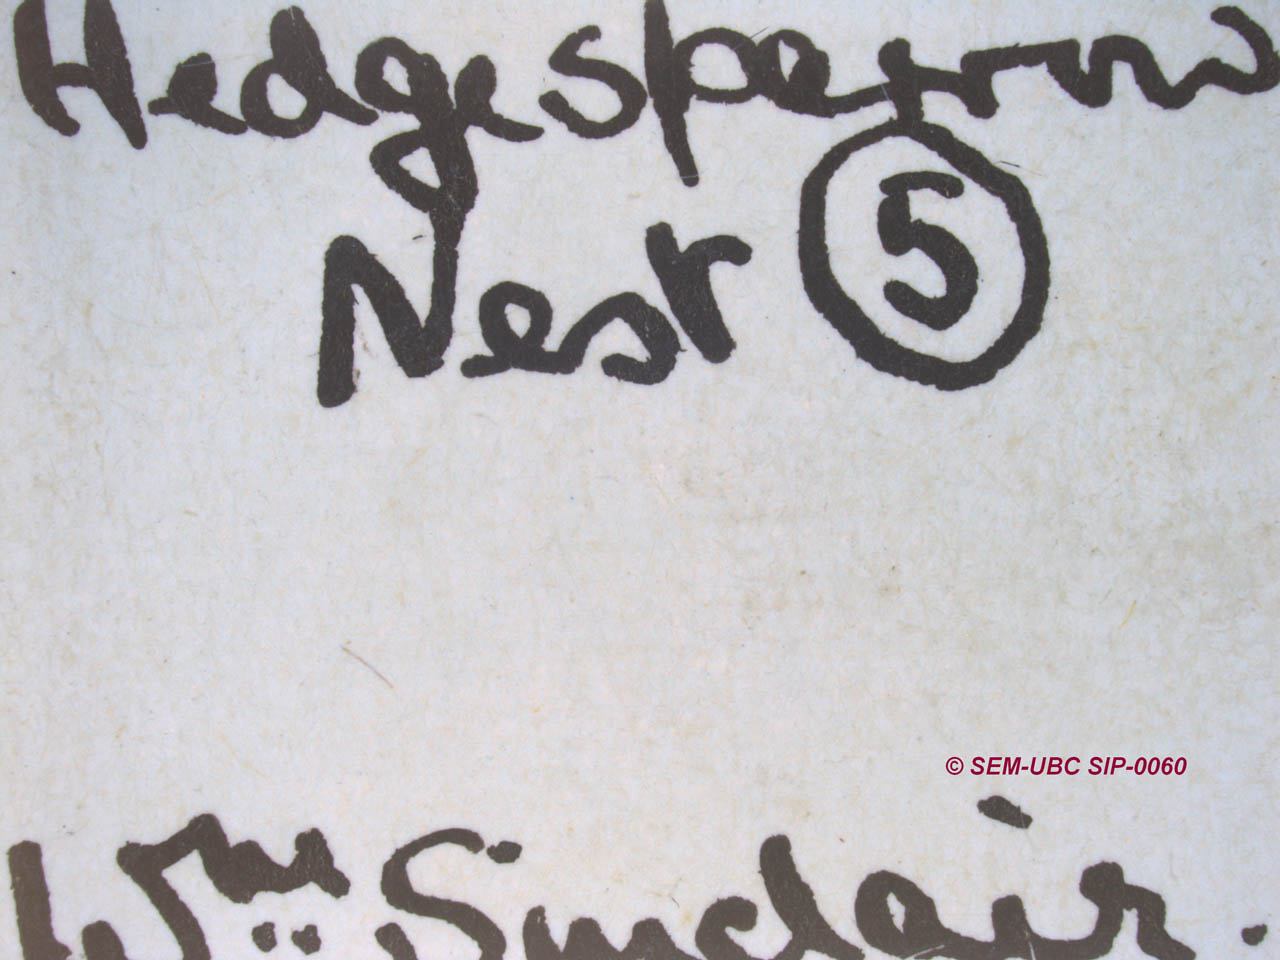 Hedgesparrow
Nest 5
© SEM-UBC SIP-0060
Wm Sinclair.